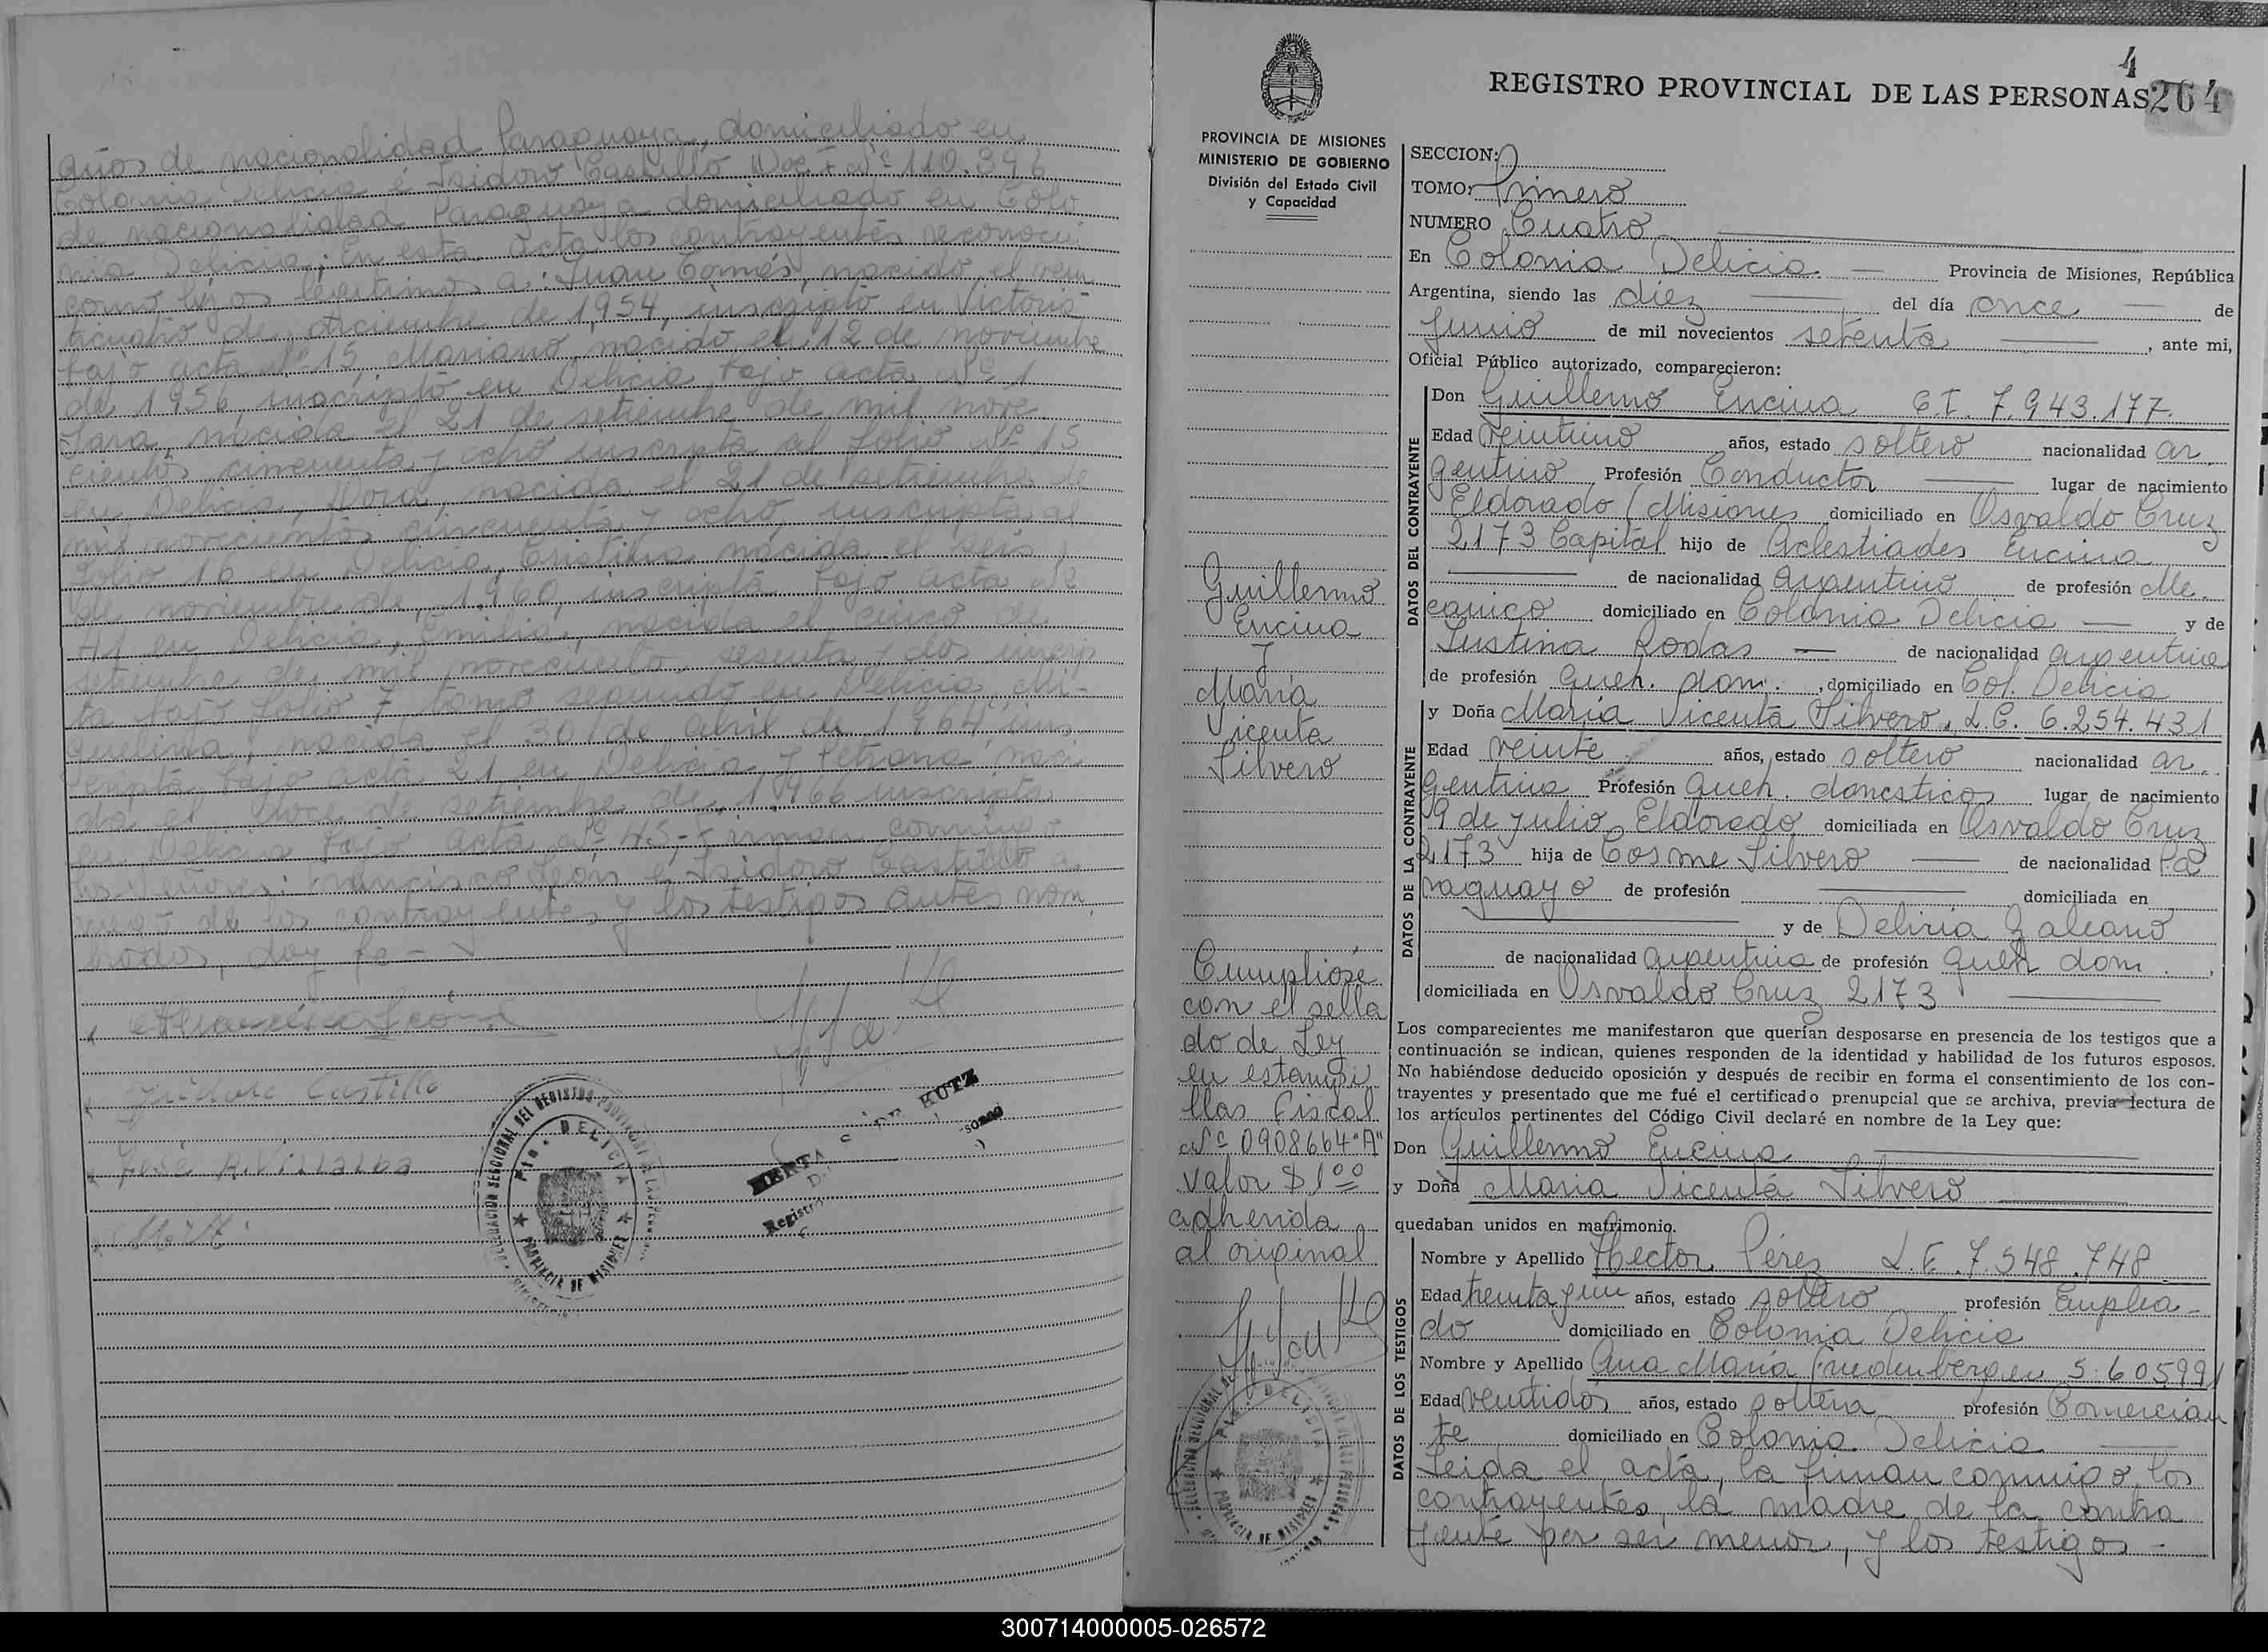 años de nacionalidad Paraguaya, domiciliado en
Colonia Delicia é Isidoro Castillo Doc. Nº 110.396
de nacionalidad Paraguaya domiciliado en Colo
nia Delicia; En esta acta los contrayentes reconocen
como hijos legítimos a: Juan Tomás, nacido el vein
ticuatro de diciembre de 1954, inscripto en Victoria
bajo acta Nº 15, Mariano, nacido el 12 de noviembre
de 1956, inscripto en Delicia bajo acta Nº 1
Sara, nacida el 21 de setiembre de mil nove
cientos cincuenta y ocho inscripta al folio Nº 15
en Delicia, Nora, nacida el 21 de setiembre de
mil novecientos cincuenta y ocho, inscripta al
folio 16 en Delicia, Cristina nacida el seis
de noviembre de 1960, inscripta bajo acta Nº
41 en Delicia, Emilia, nacida el cinco de
setiembre de mil novecientos sesenta y dos inscrip
ta bajo folio 7 tomo segundo en Delicia, Mi-
guelina, nacida el 30 de abril de 1964 ins
cripta bajo acta 21 en Delicia y Petrona naci
da el doce de setiembre de 1966 inscripta
en Delicia bajo acta Nº 45,- Firman conmigo
los Señores: Francisco León é Isidoro Castillo a
ruego de los contrayentes y los testigos antes nom
brados, doy fe -
Isidoro Castillo
José R. Villalba
DELEGACION SECCIONAL DEL REGISTRO PROVINCIAL DE LAS PERSONAS
Pto. DELICIA
PROVINCIA DE MISIONES
KUTZ
4
REGISTRO PROVINCIAL DE LAS PERSONAS 264
PROVINCIA DE MISIONES
MINISTERIO DE GOBIERNO
División del Estado Civil
y Capacidad
SECCION:
TOMO: Primero
NUMERO Cuatro
En Colonia Delicia Provincia de Misiones, República
Argentina, siendo las diez del día once de
Junio de mil novecientos setenta, ante mi,
Oficial Público autorizado, comparecieron:
DATOS DEL CONTRAYENTE
Don Guillermo Encina C.I. 7.943.177.
Edad veintiuno años, estado soltero nacionalidad ar
gentino Profesión Conductor lugar de nacimiento
Eldorado (Misiones domiciliado en Osvaldo Cruz
2173 Capital hijo de Encina
de nacionalidad argentino de profesión Me
canico domiciliado en Colonia Delicia y de
Justina Rodas de nacionalidad argentina
de profesión Queh. dom., domiciliado en Col. Delicia
DATOS DE LA CONTRAYENTE
y Doña María Vicenta Silvero, L.C. 6.254.431
Edad veinte años, estado soltero nacionalidad ar
gentina Profesión Queh. domesticos lugar de nacimiento
9 de Julio Eldorado domiciliada en Osvaldo Cruz
2173 hija de Cosme Silvero de nacionalidad Pa
raguayo de profesión domiciliada en
y de Deliria Galeano
de nacionalidad argentina de profesión queh dom.,
domiciliada en Osvaldo Cruz 2173
Los comparecientes me manifestaron que querían desposarse en presencia de los testigos que a
continuación se indican, quienes responden de la identidad y habilidad de los futuros esposos.
No habiéndose deducido oposición y después de recibir en forma el consentimiento de los con-
trayentes y presentado que me fué el certificado prenupcial que se archiva, previa lectura de
los artículos pertinentes del Código Civil declaré en nombre de la Ley que:
Don Guillermo Encina
y Doña Maria Vicenta Silvero
quedaban unidos en matrimonio.
DATOS DE LOS TESTIGOS
Nombre y Apellido Hector Pérez L.E. 7.548.748
Edad treinta y un años, estado soltero profesión Emplea-
do domiciliado en Colonia Delicia
Nombre y Apellido Ana María 5.605991
Edad veintidos años, estado soltera profesión Comercian
te domiciliado en Colonia Delicia
Leida el acta, la firman conmigo, los
contrayentes, la madre de la contra
yente por ser menor, y los testigos -
Guillermo
Encina
y
María
Vicenta
Silvero
Cumpliose
con el sella
do de Ley
en estampi
llas Fiscal
Nº 0908664 "A"
valor $ 1.00
adherida
al original
DELEGACION SECCIONAL DE
Pto. DELICIA
PROVINCIA DE MISIONES
300714000005-026572